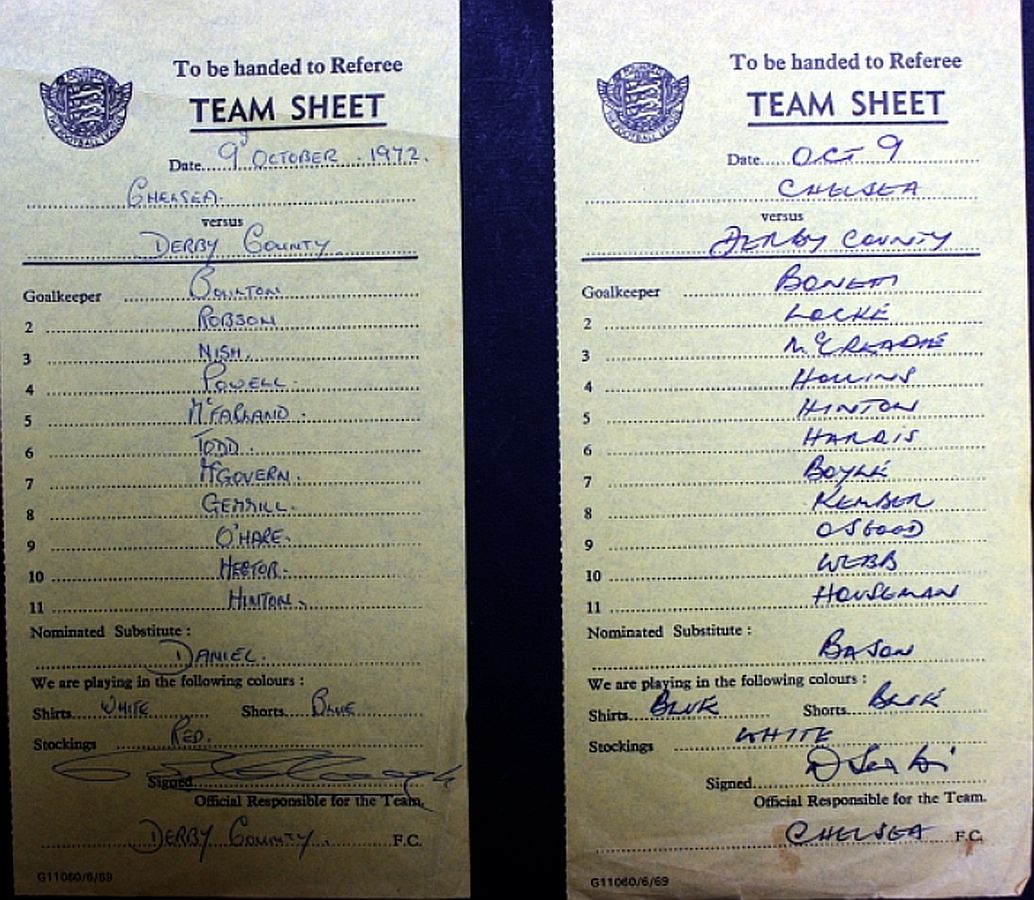 To be handed to Referee
TEAM SHEET
Date 9 OCTOBER . 1972.
CHELSEA.
versus
DERBY COUNTY
Goalkeeper BOULTON
2 ROBSON
3 NISH.
4 POWELL.
5 McFARLAND.
6 TODD.
7 McGOVERN.
8 GEMMILL.
9 O'HARE.
10 HECTOR.
11 HINTON.
Nominated Substitute :
DANIEL.
We are playing in the following colours :
Shirts WHITE Shorts BLUE
Stockings RED.
Signed
Official Responsible for the Team.
DERBY COUNTY. F.C.
G11060/6/69
To be handed to Referee
TEAM SHEET
Date OCT 9
CHELSEA
versus
DERBY COUNTY
Goalkeeper BONETTI
2 LOCKE
3 McCREADIE
4 HOLLINS
5 HINTON
6 HARRIS
7 BOYLE
8 KEMBER
9 OSGOOD
10 WEBB
11 HOUSEMAN
Nominated Substitute :
BASON
We are playing in the following colours :
Shirts BLUE Shorts BLUE
Stockings WHITE
Signed
Official Responsible for the Team.
CHELSEA F.C.
G11060/6/69